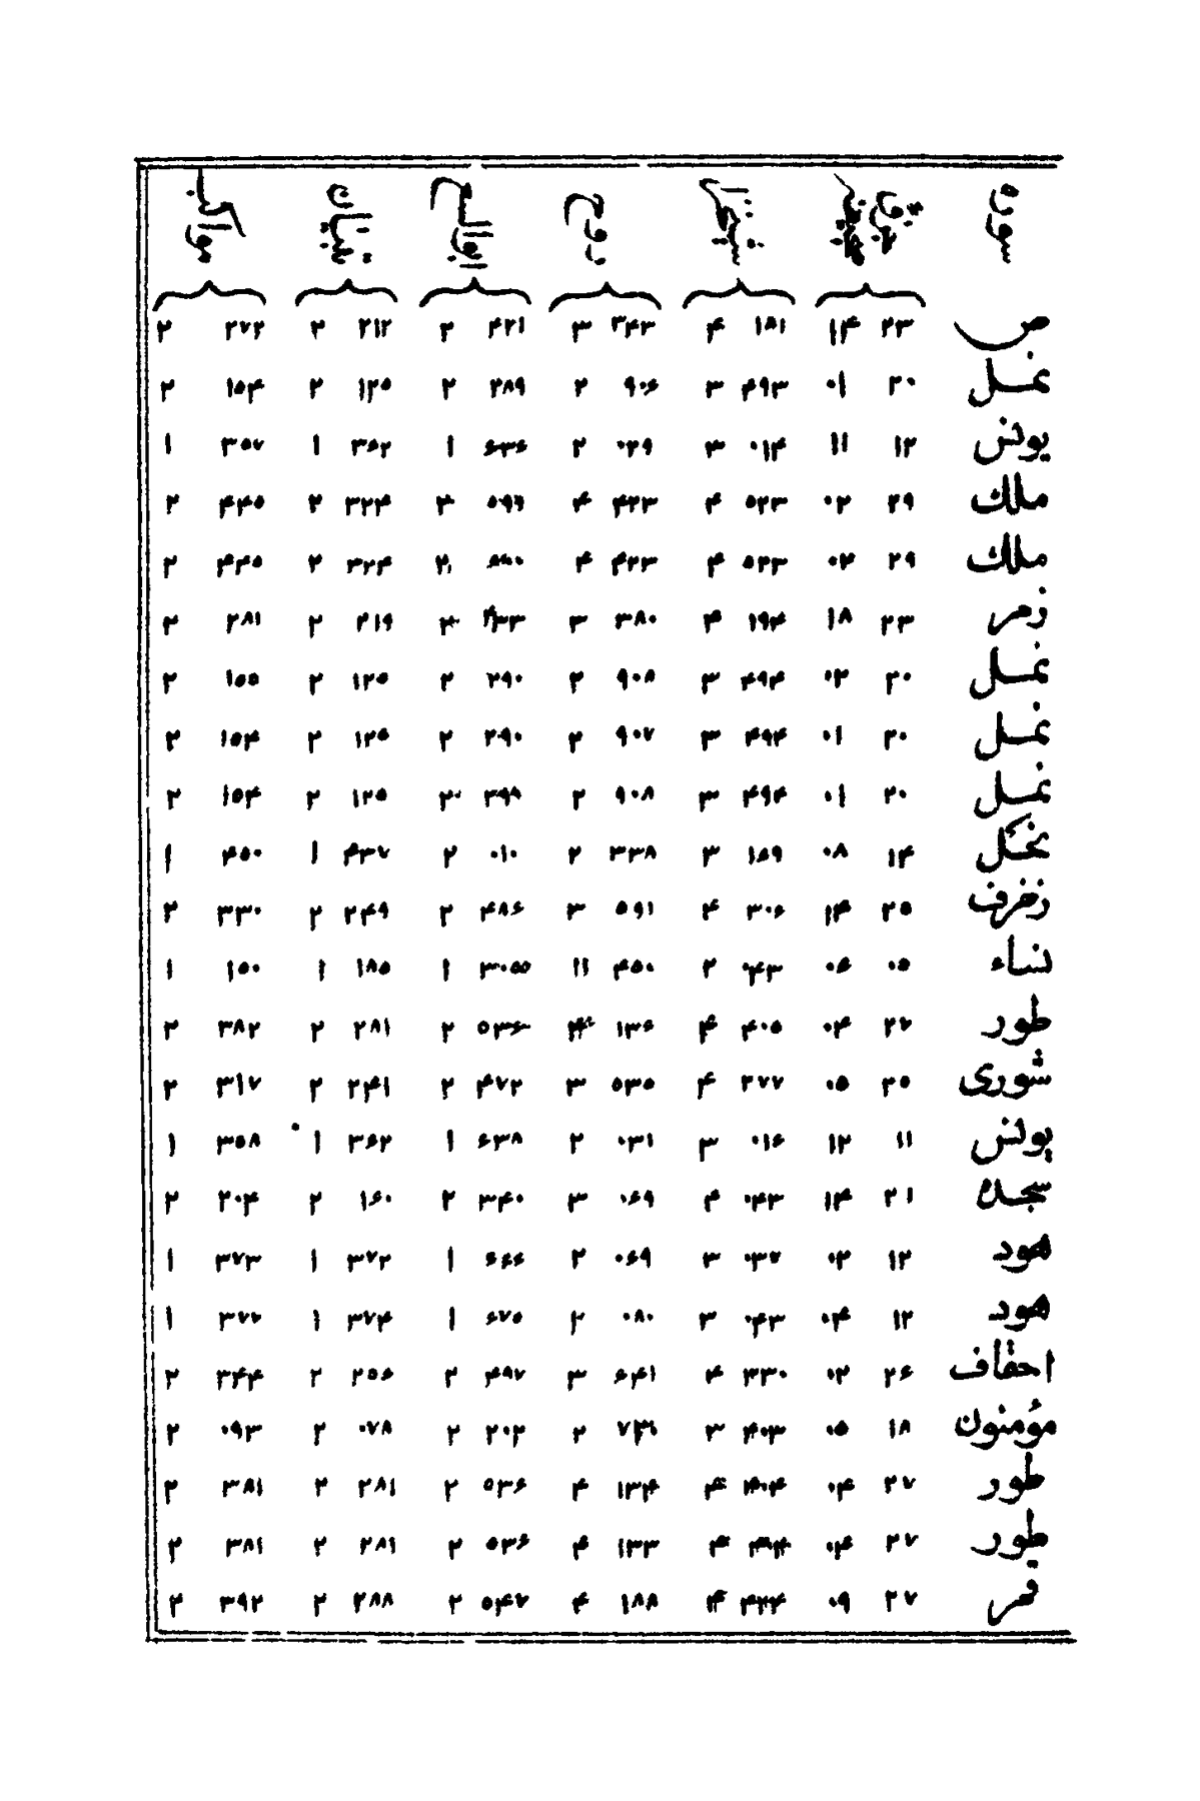 سوره روح تبیان
ص ۲۳ ۱۴ ۱۸۱ ۴ ۳۴۳ ۳ ۴۲۱ ۲ ۲۱۲ ۲ ۲۷۲ ۲
نمل ۲۰ ۰۱ ۴۹۳ ۳ ۹۰۶ ۲ ۲۸۹ ۲ ۱۲۵ ۲ ۱۵۴ ۲
یونس ۱۲ ۱۱ ۰۱۴ ۳ ۰۲۹ ۲ ۶۳۶ ۱ ۳۶۲ ۱ ۳۵۷ ۱
ملک ۲۹ ۰۲ ۵۲۳ ۴ ۴۲۳ ۴ ۲ ۳۲۴ ۲ ۴۴۵ ۲
ملک ۲۹ ۰۲ ۵۲۳ ۴ ۴۲۳ ۴ ۲ ۳۲۴ ۲ ۴۴۵ ۲
زمر ۲۳ ۱۸ ۱۹۴ ۴ ۳۸۰ ۳ ۲ ۲۱۹ ۲ ۲۸۱ ۲
نمل ۲۰ ۰۲ ۴۹۴ ۳ ۹۰۸ ۲ ۲۹۰ ۲ ۱۲۵ ۲ ۱۵۵ ۲
نمل ۲۰ ۰۱ ۴۹۴ ۳ ۹۰۷ ۲ ۲۹۰ ۲ ۱۲۵ ۲ ۱۵۴ ۲
نمل ۲۰ ۰۱ ۴۹۴ ۳ ۹۰۸ ۲ ۲ ۱۲۵ ۲ ۱۵۴ ۲
نحل ۱۴ ۰۸ ۱۵۹ ۳ ۳۳۸ ۲ ۰۱۰ ۲ ۴۳۷ ۱ ۴۵۰ ۱
زخرف ۲۵ ۱۴ ۳۰۶ ۴ ۵۹۱ ۳ ۴۸۶ ۲ ۲۴۹ ۲ ۳۳۰ ۲
نساء ۰۵ ۰۶ ۰۴۳ ۲ ۴۵۰ ۱۱ ۳۰۵۵ ۱ ۱۸۵ ۱ ۱۵۰ ۱
طور ۲۷ ۰۴ ۴۰۵ ۴ ۱۳۶ ۴ ۵۳۶ ۲ ۲۸۱ ۲ ۳۸۲ ۲
شوری ۲۵ ۰۵ ۲۷۷ ۴ ۵۳۵ ۳ ۴۷۲ ۲ ۲۴۱ ۲ ۳۱۷ ۲
یونس ۱۱ ۱۲ ۰۱۶ ۳ ۰۳۱ ۲ ۶۳۸ ۱ ۳۶۲ ۱ ۳۵۸ ۱
سجده ۲۱ ۱۴ ۰۴۳ ۴ ۰۶۹ ۳ ۳۴۰ ۲ ۱۶۰ ۲ ۲۰۴ ۲
هود ۱۲ ۰۲ ۰۳۷ ۳ ۰۶۹ ۲ ۶۶۶ ۱ ۳۷۲ ۱ ۳۷۳ ۱
هود ۱۲ ۰۴ ۰۴۳ ۳ ۰۸۰ ۲ ۶۷۵ ۱ ۳۷۴ ۱ ۳۷۷ ۱
احقاف ۲۶ ۰۲ ۳۳۰ ۴ ۶۴۱ ۳ ۴۹۷ ۲ ۲۵۶ ۲ ۳۴۴ ۲
مؤمنون ۱۸ ۰۵ ۴۰۳ ۳ ۲ ۲۰۲ ۲ ۰۷۸ ۲ ۰۹۳ ۲
طور ۲۷ ۰۴ ۴۰۴ ۴ ۱۳۴ ۴ ۵۳۶ ۲ ۲۸۱ ۲ ۳۸۱ ۲
طور ۲۷ ۰۴ ۴ ۱۳۳ ۴ ۵۳۶ ۲ ۲۸۱ ۲ ۳۸۱ ۲
قمر ۲۷ ۰۹ ۴۳۴ ۴ ۱۸۸ ۴ ۵۴۷ ۲ ۲۸۸ ۲ ۳۹۲ ۲